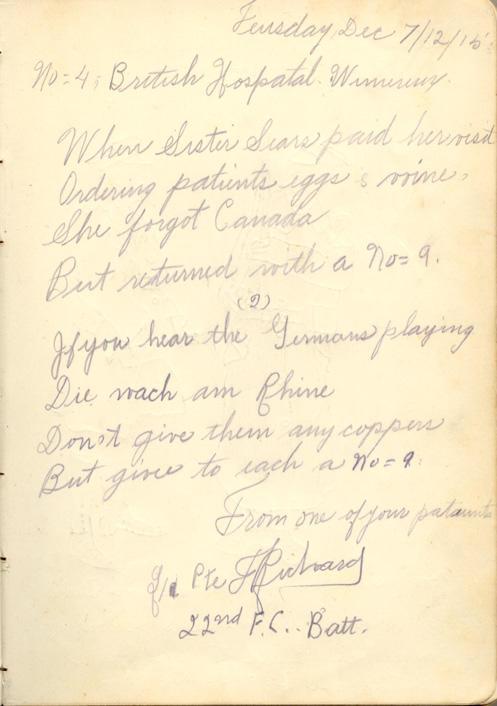 Teusday Dec 7/12/15
No=4, British Hospatal. Wimereux.
When Sister Sears paid her visit
Ordering patients eggs & wine,
She forgot Canada
But returned with a No=9.
(2)
If you hear the Germans playing
Die wach am Rhine
Don't give them any coppers
But give to each a No=9.
From one of your pataunts
Pte F Richard
22nd F.C. Batt.